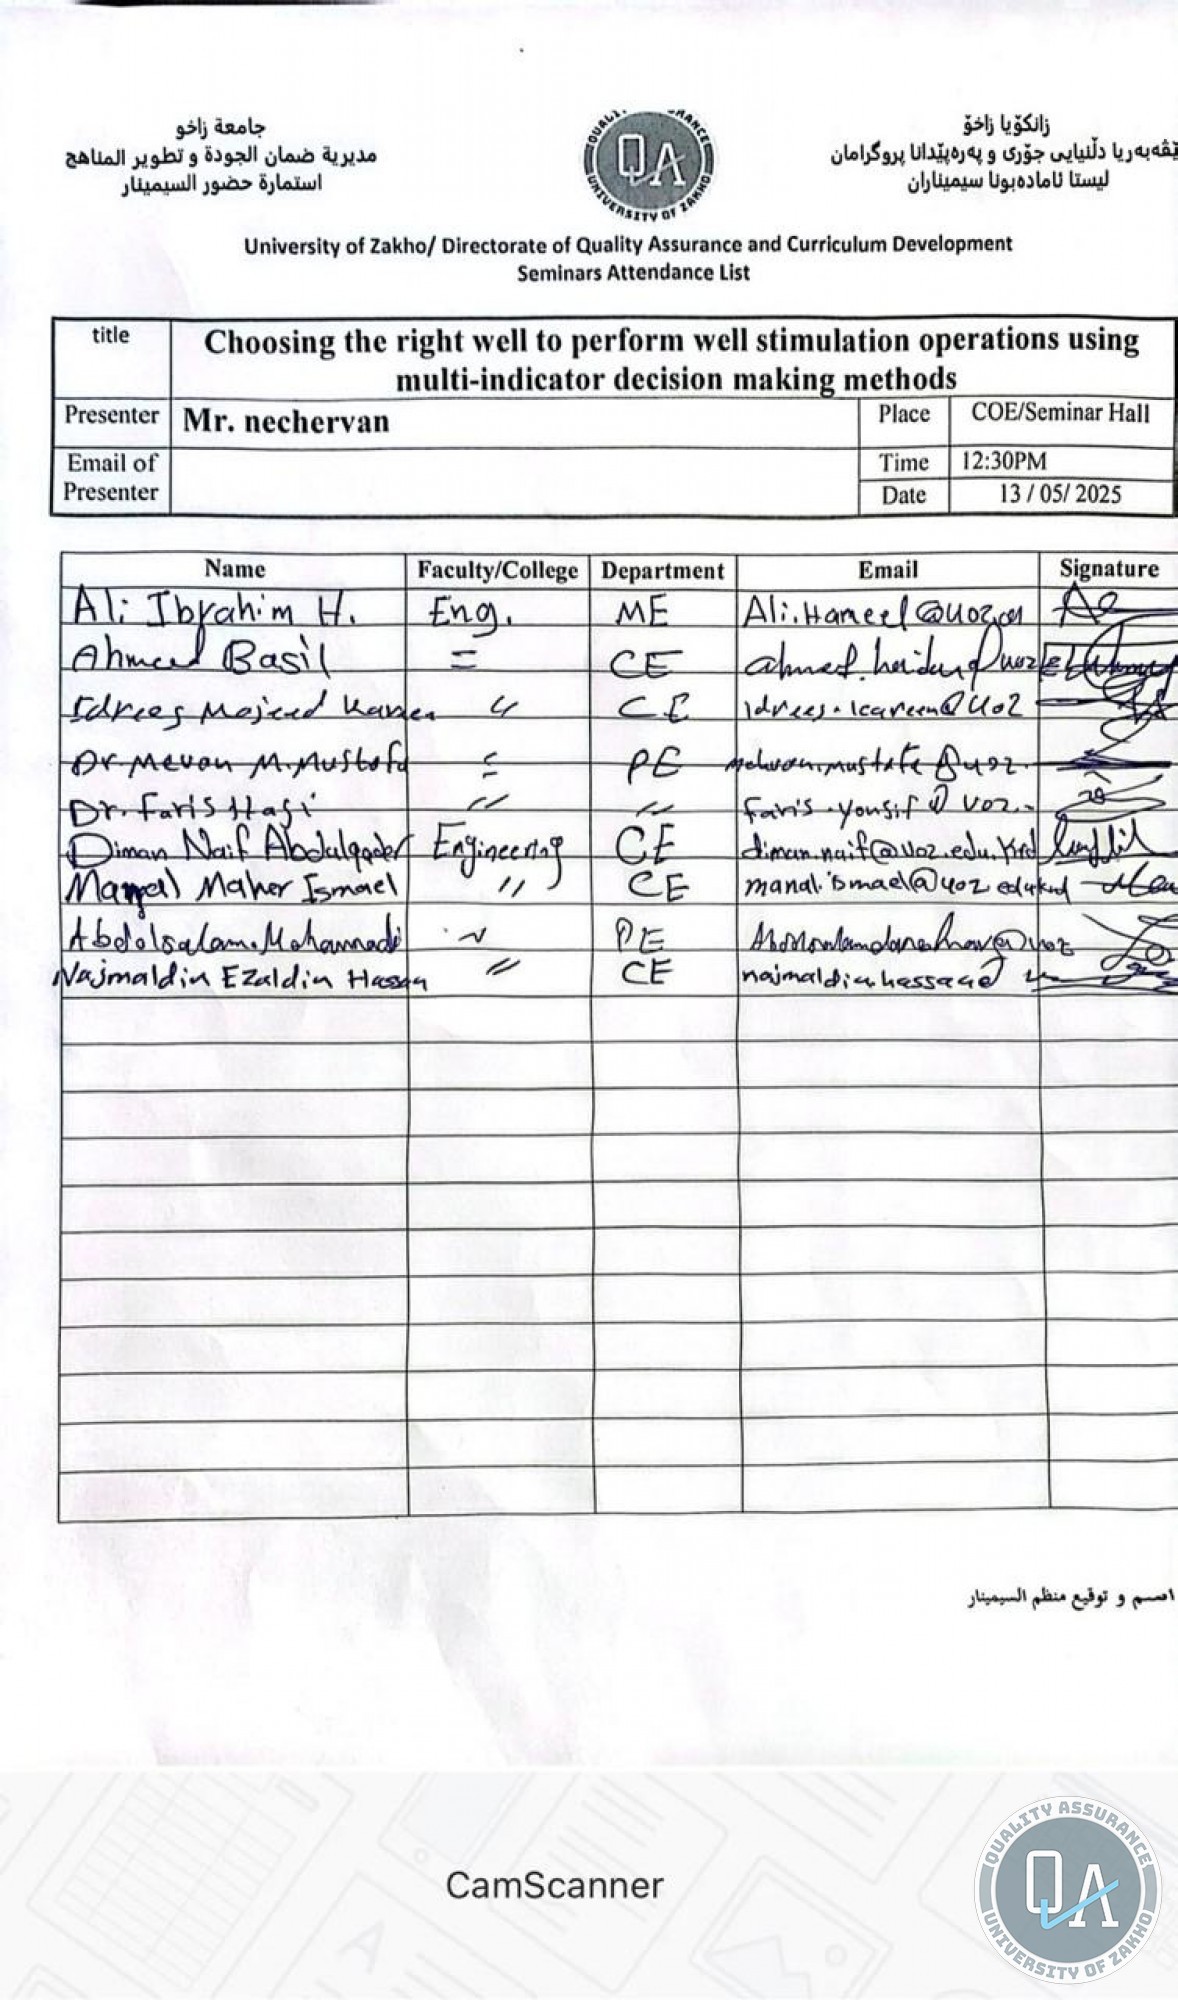 جامعة زاخو
مديرية ضمان الجودة و تطوير المناهج
استمارة حضور السيمينار
QUALITY ASSURANCE
QA
UNIVERSITY OF ZAKHO
زانكۆیا زاخۆ
ڤەبەریا دڵنیایی جۆری و پەرەپێدانا پروگرامان
لیستا ئامادەبونا سیمیناران
University of Zakho/ Directorate of Quality Assurance and Curriculum Development
Seminars Attendance List
title Choosing the right well to perform well stimulation operations using
multi-indicator decision making methods
Presenter Mr. nechervan Place COE/Seminar Hall
Email of Presenter Time 12:30PM
Date 13 / 05/ 2025
Name Faculty/College Department Email Signature
Ali Ibrahim H. Eng. ME
Ahmed Basil = CE
Idrees Majeed Kareem " CE idrees.kareem@uoz
Dr. Mevan M. Mustafa = PE
Dr. Faris Haji " " faris.yousif@uoz.
Diman Naif Abdulqader Engineering CE diman.naif@uoz.edu.krd
Manal Maher Ismael " CE manal.ismael@uoz.edu.krd
Abdolsalam Mohammadi " PE
Najmaldin Ezaldin Hassan " CE najmaldin.hassan@
اسم و توقيع منظم السيمينار
CamScanner
QUALITY ASSURANCE
QA
UNIVERSITY OF ZAKHO